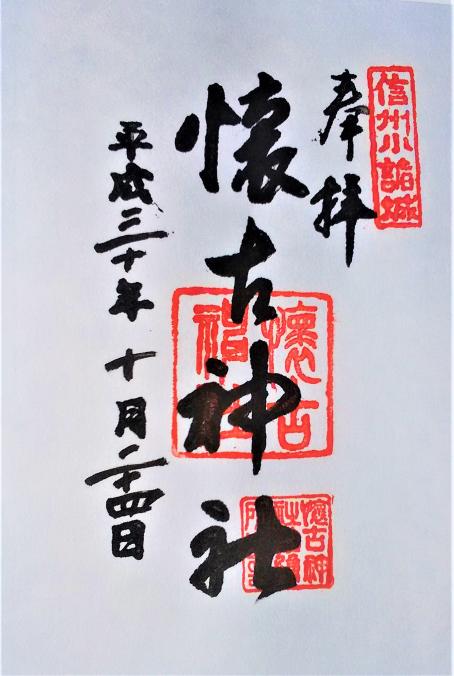 信州小諸城
奉拝
懐古神社
懷古
神社
平成三十年十月二十四日